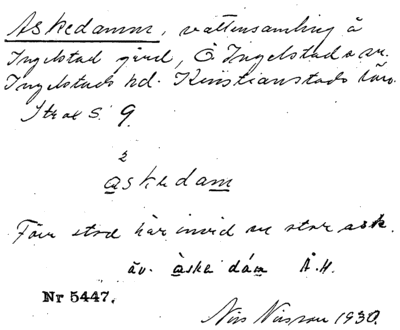 Askedamm, vattensamling å
Ingelstad gård, Ö Ingelstads sn.
Ingelstads hd. Kristianstads län.
Str ae S. 9
2
askedam
Förr stod här invid en stor ask.
äv. àske dám Å.H.
Nr 5447.
Nils Nilsson 1930.